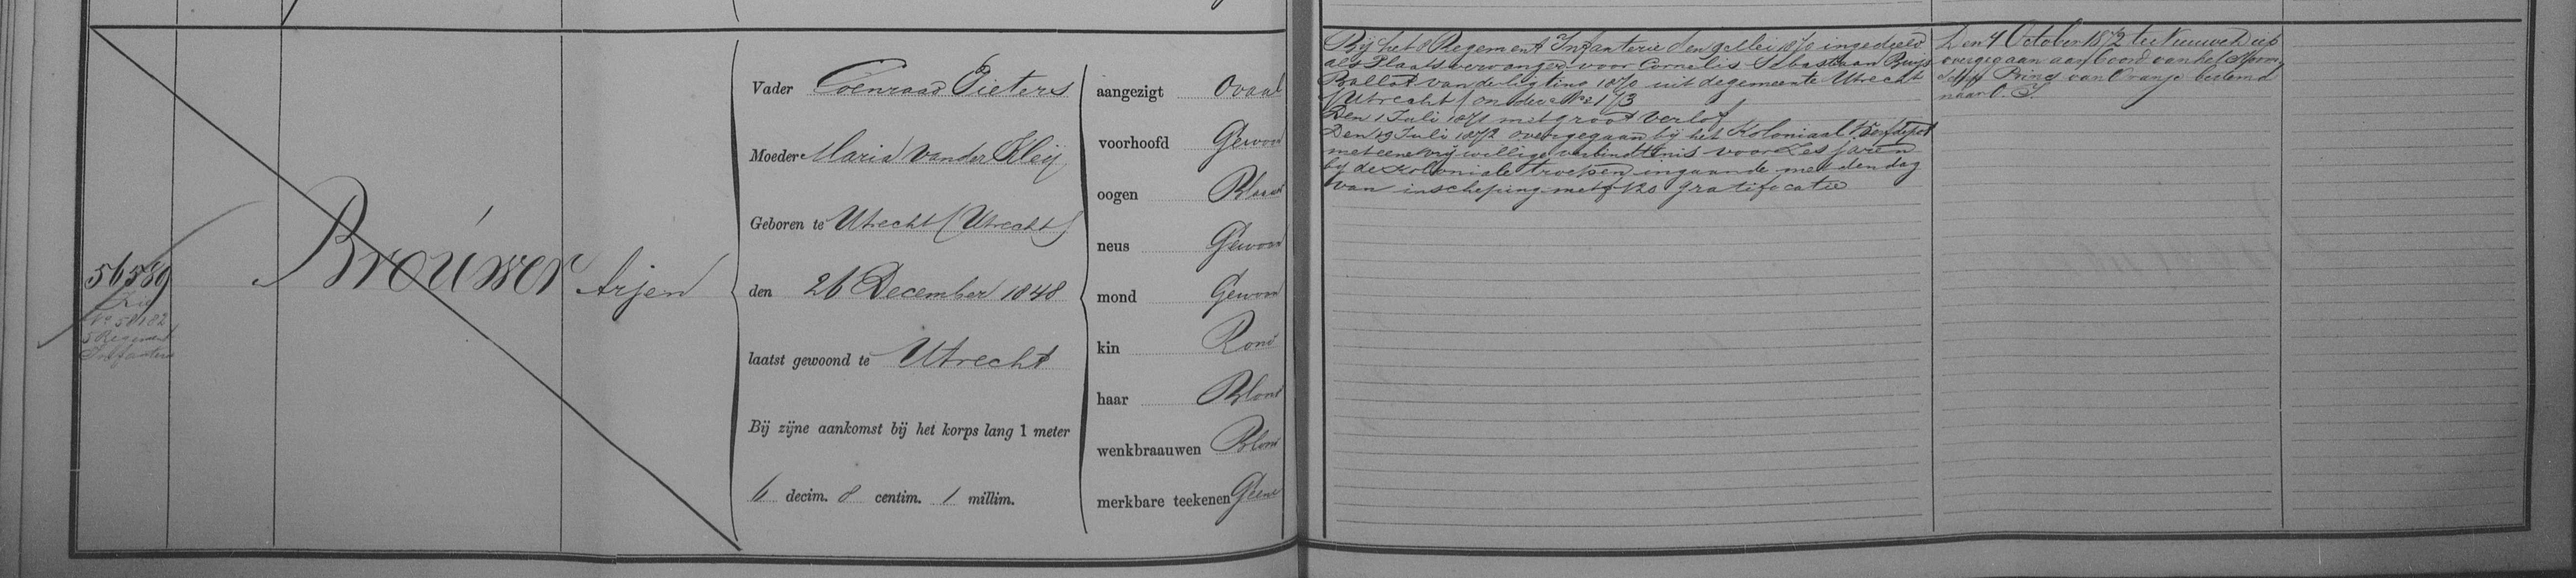 56539
Zie
No 58182
5 Regiment
Infanterie
Brouwer
Arjen
Vader Coenraad Pieters
Moeder Maria van der Kleij
Geboren te Utrecht (Utrecht)
den 26 December 1848
laatst gewoond te Utrecht
Bij zijne aankomst bij het korps lang 1 meter
6 decim. 8 centim. 1 millim.
aangezigt Ovaal
voorhoofd Gewoon
oogen Blauw
neus Gewoon
mond Gewoon
kin Rond
haar Blond
wenkbraauwen Blond
merkbare teekenen Geene
Bij het 8 Regement Infanterie den 9 Mei 1870 ingedeeld
als Plaatsvervanger voor Cornelis Sebastiaan Buijs
Ballot van de ligting 1870 uit de gemeente Utrecht
(Utrecht) onder No 2173
Den 1 Juli 1871 met groot verlof
Den 19 Juli 1872 overgegaan bij het Koloniaal Werfdepot
met eene vrijwillige verbindtenis voor Zes jaren
bij de koloniale troepen ingaande met den dag
van inscheping met ƒ 120 gratificatie
Den 4 October 1872 te Nieuwe Diep
overgegaan aan boord van het Stoom
schip Prins van Oranje bestemd
naar O. I.